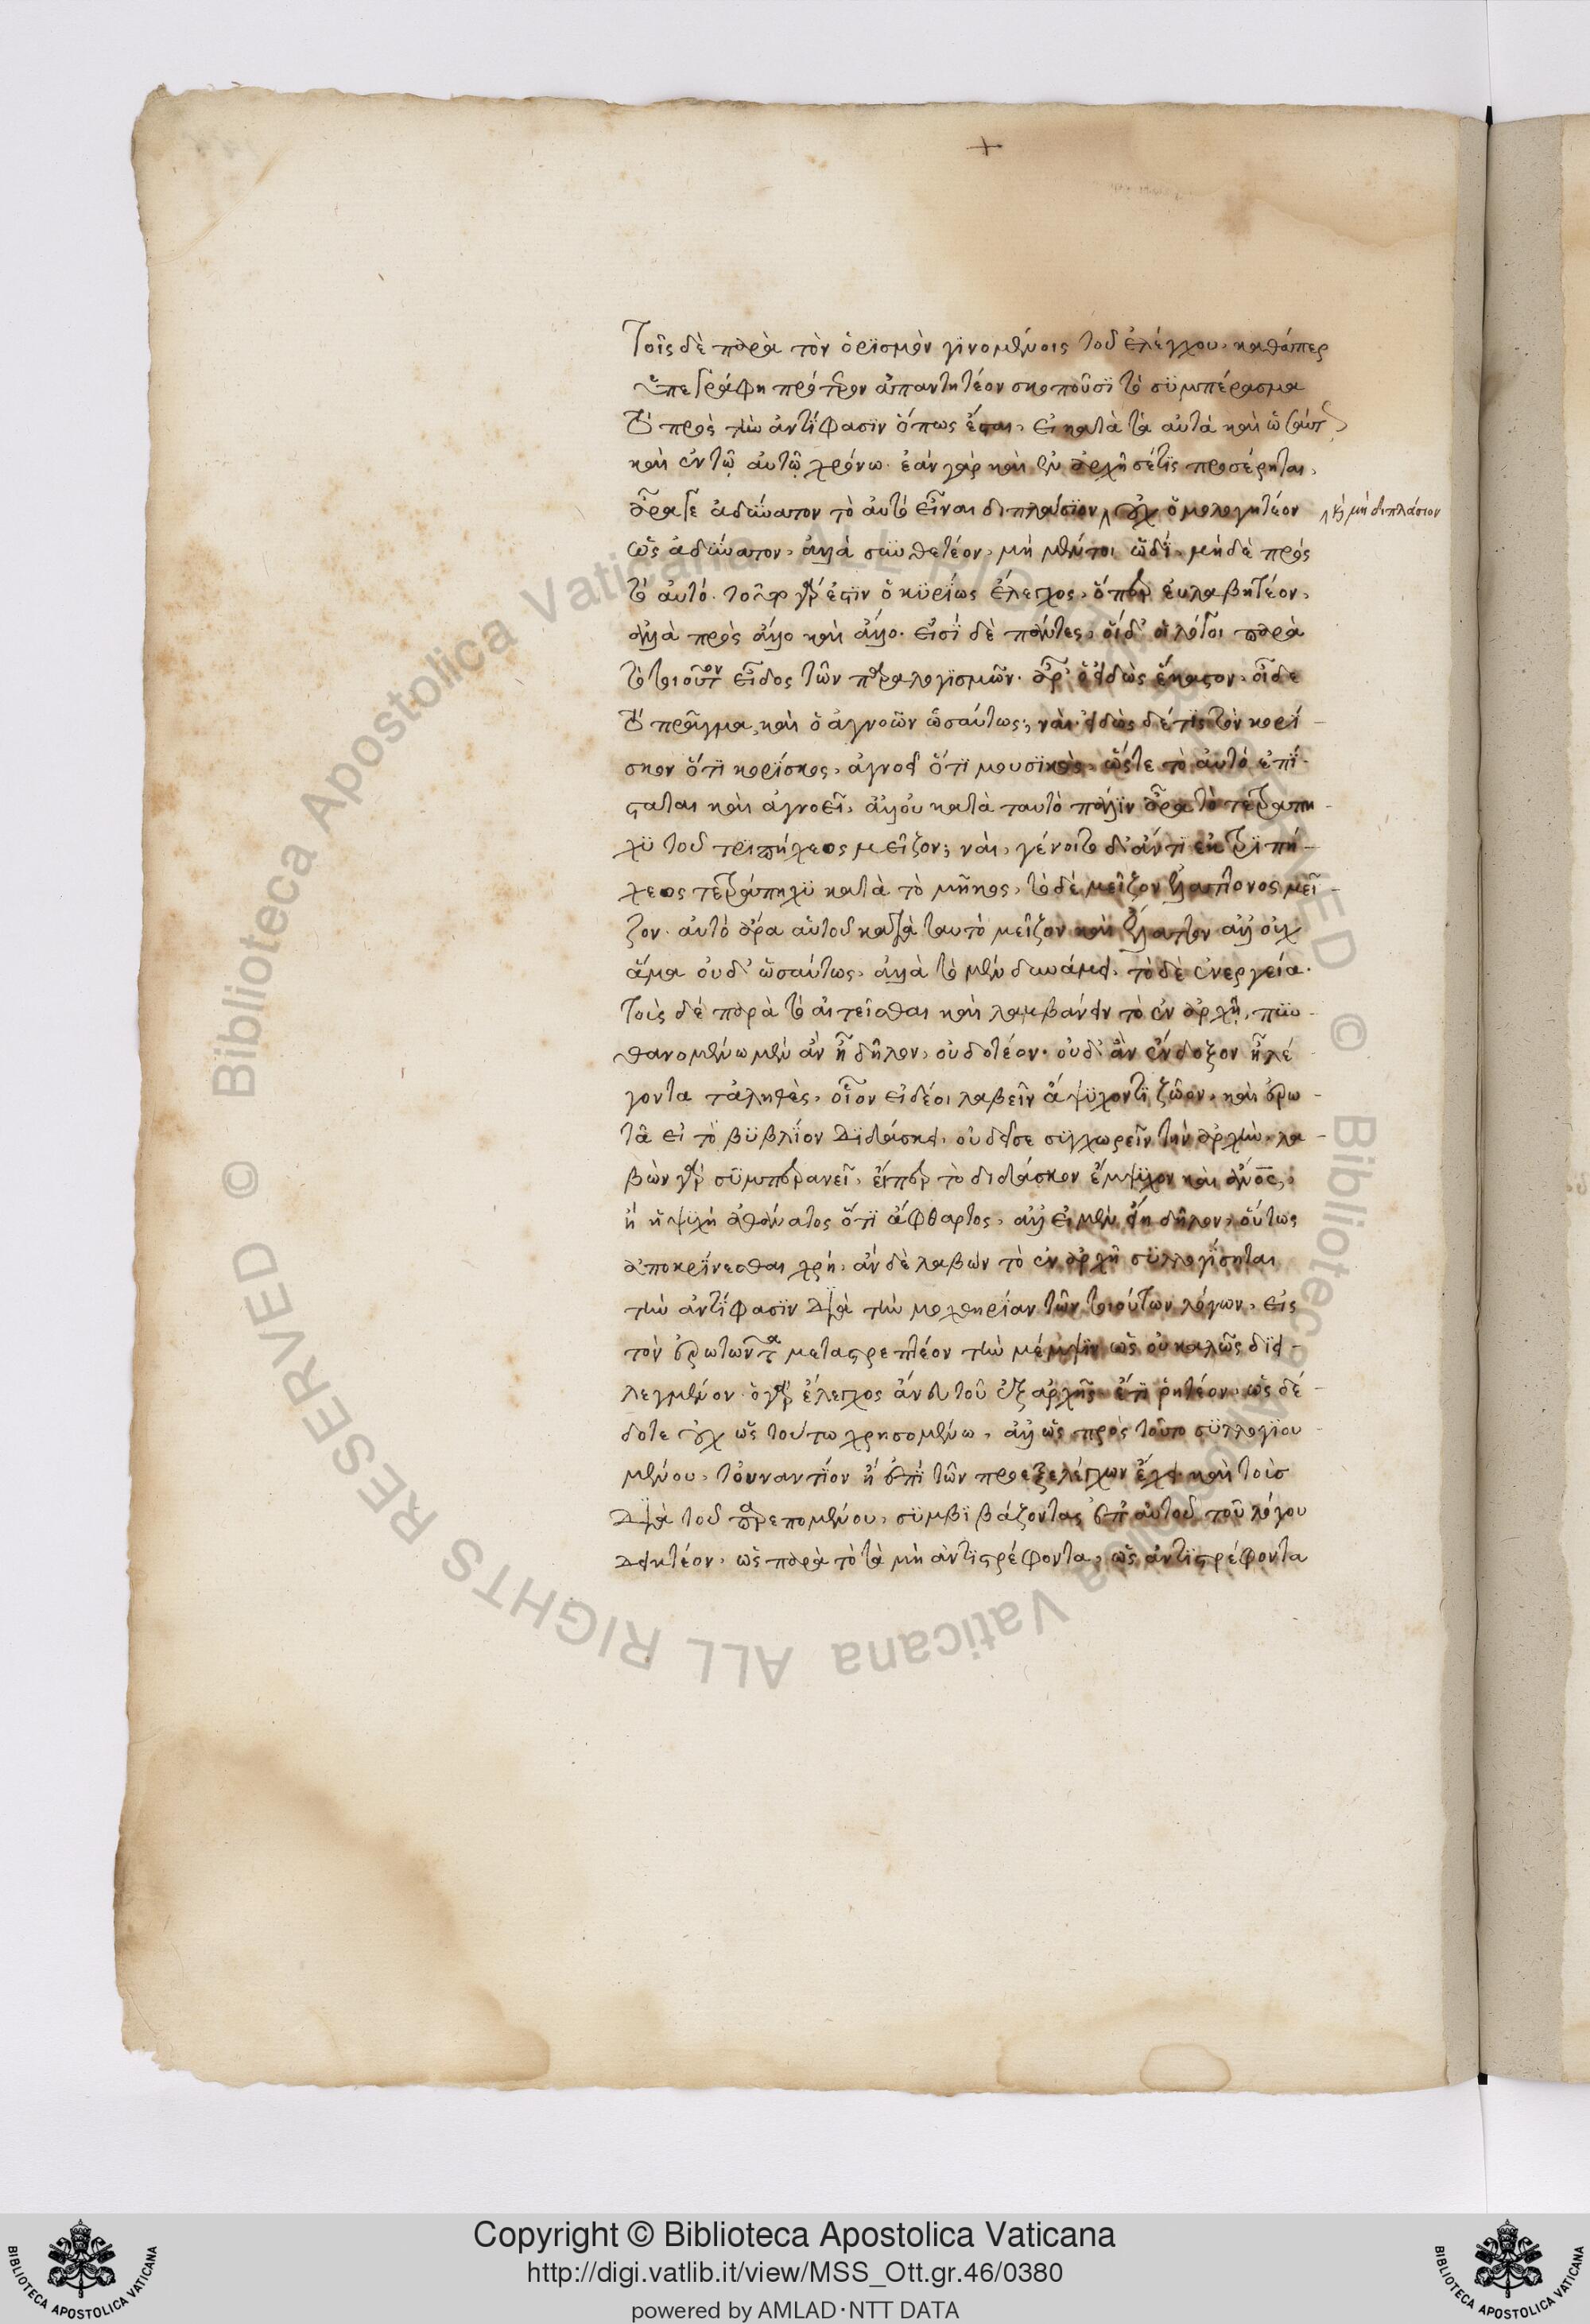 +
Τοῖς δὲ παρὰ τὸν ὁρισμὸν γινομένοις τοῦ ἐλέγχου, καθάπερ
ὑπεγράφη πρότερον ἀπαντητέον σκοποῦσι τὸ συμπέρασμα
τὸ πρὸς τὴν ἀντίφασιν ὅπως ἔσται, εἰ κατὰ τὰ αὐτὰ καὶ ὡσαύτως
καὶ ἐν τῷ αὐτῷ χρόνω. ἐὰν γὰρ καὶ ἐν ἀρχῆ σέ τις προσέρηται,
ἆρά γε ἀδύνατον τὸ αὐτὸ εἶναι διπλάσιον οὐχ ὁμολογητέον
καὶ μὴ διπλάσιον
ὡς ἀδύνατον, ἀλλὰ συνθετέον, μὴ μέντοι ὡδί, μὴ δὲ πρὸς
τὸ αὐτό. τοῦτο γάρ ἐστιν ὁ κυρίως ἔλεγχος, ὅπερ εὐλαβητέον,
ἀλλὰ πρὸς ἄλλο καὶ ἄλλο. εἰσὶ δὲ πάντες, οἵδ' οἱ λόγοι παρὰ
τὸ τοιοῦτον εἶδος τῶν παραλογισμῶν. ἆρ' ὁ εἰδὼς ἕκαστον, οἶδε
τὸ πρᾶγμα, καὶ ὁ ἀγνοῶν ὡσαύτως; ναί. εἰδὼς δέ τις τὸν κορί-
σκον ὅτι κορίσκος, ἀγνοεῖ ὅτι μουσικὸς, ὥστε τὸ αὐτὸ ἐπί-
σταται καὶ ἀγνοεῖ, ἀλλ' οὐ κατὰ ταυτὸ πάλιν ἆρα τὸ τετράπη-
χυ τοῦ τριπήχεος μεῖζον; ναί, γένοιτο δ' ἄν τι ἐκ τριπή-
χεος τετράπηχυ κατὰ τὸ μῆκος, τὸ δὲ μεῖζον ἐλάττονος μεῖ-
ζον. αὐτὸ ἄρα αὑτοῦ κατὰ ταυτὸ μεῖζον καὶ ἔλαττον ἀλλ' οὐχ
ἅμα οὐδ' ὡσαύτως, ἀλλὰ τὸ μὲν δυνάμει, τὸ δὲ ἐνεργεία.
Τοὺς δὲ παρὰ τὸ αἰτεῖσθαι καὶ λαμβάνειν τὸ ἐν ἀρχῆ, πυν-
θανομένω μὲν ἂν ἦ δῆλον, οὐ δοτέον. οὐδ' ἂν ἔνδοξον ἦ λέ-
γοντα τἀληθὲς, οἷον εἰ δέοι λαβεῖν ἄψυχόν τι ζῶον, καὶ ἐρω-
τᾶ εἰ τὸ βυβλίον διδάσκει, οὐ δεῖ σε συγχωρεῖν τὴν ἀρχὴν, λα-
βὼν γὰρ συμπερανεῖ, εἴπερ τὸ διδάσκον ἔμψυχον καὶ ἄνος,
ἢ ἡ ψυχὴ ἀθάνατος ὅτι ἄφθαρτος, ἀλλ' εἰ μὲν εἴη δῆλον, οὕτως
ἀποκρίνεσθαι χρή, ἂν δὲ λαβὼν τὸ ἐν ἀρχῆ συλλογίσηται
τὴν ἀντίφασιν διὰ τὴν μοχθηρίαν τῶν τοιούτων λόγων, εἰς
τὸν ἐρωτῶντα μεταστρεπτέον τὴν μέμψιν ὡς οὐ καλῶς διει-
λεγμένον. ὁ γὰρ ἔλεγχος ἄνευ τοῦ ἐξ ἀρχῆς. ἔτι ῥητέον, ὡς δέ-
δοτε οὐχ ὡς τούτω χρησομένω, ἀλλ' ὡς πρὸς τοῦτο συλλογιου-
μένου, τοὐναντίον ἢ ἐπὶ τῶν προεξελέγχων ἔχει. καὶ τοὺς
διὰ τοῦ παρεπομένου, συμβιβάζοντας ἐπ' αὐτοῦ τοῦ λόγου
δεικτέον, ὡς παρὰ τὸ τὰ μὴ ἀντιστρέφοντα, ὡς ἀντιστρέφοντα
© Biblioteca Apostolica Vaticana ALL RIGHTS RESERVED © Biblioteca Apostolica Vaticana ALL RIGHTS RESERVED
Copyright © Biblioteca Apostolica Vaticana
http://digi.vatlib.it/view/MSS_Ott.gr.46/0380
powered by AMLAD·NTT DATA
BIBLIOTECA APOSTOLICA VATICANA
BIBLIOTECA APOSTOLICA VATICANA